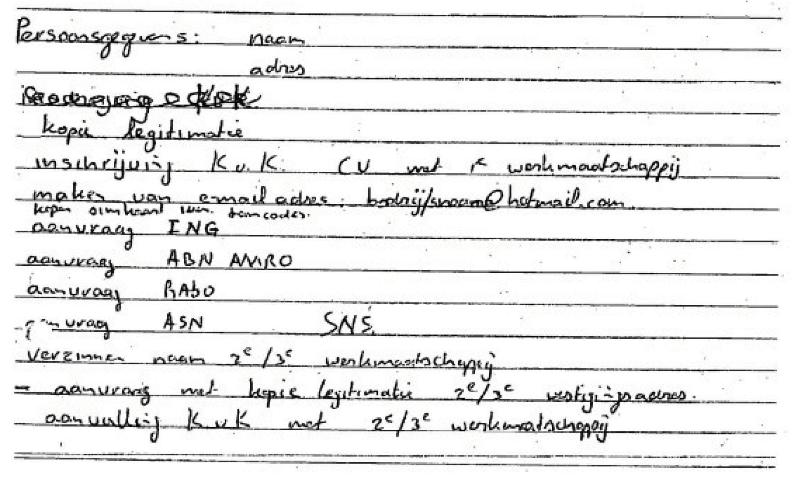 Persoonsgegevens: naam
adres
kopie legitimatie
inschrijving K.v.K. CV met 1e werkmaatschappij
maken van email adres: bedrijfsnaam@hotmail.com
kopen simkaart tancodes.
aanvraag ING
aanvraag ABN AMRO
aanvraag RABO
aanvraag ASN SNS.
verzinnen naam 2e/3e werkmaatschappij
- aanvraag met kopie legitimatie 2e/3e vestigingsadres.
aanvulling KvK met 2e/3e werkmaatschappij